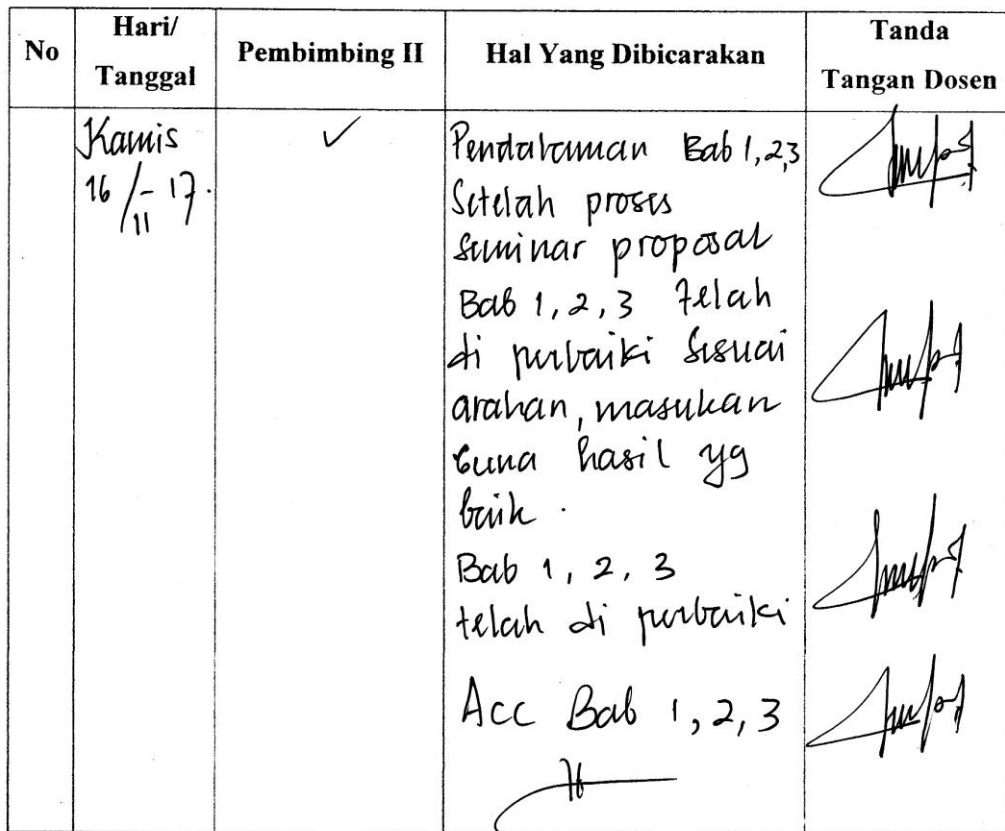 No
Hari/
Tanggal
Pembimbing II
Hal Yang Dibicarakan
Tanda
Tangan Dosen
Kamis
16/11 - 17.
✓
Pendalaman Bab 1,2,3
Setelah proses
seminar proposal
Bab 1, 2, 3 telah
di perbaiki sesuai
arahan, masukan
guna hasil yg
baik.
Bab 1, 2, 3
telah di perbaiki
Acc Bab 1, 2, 3